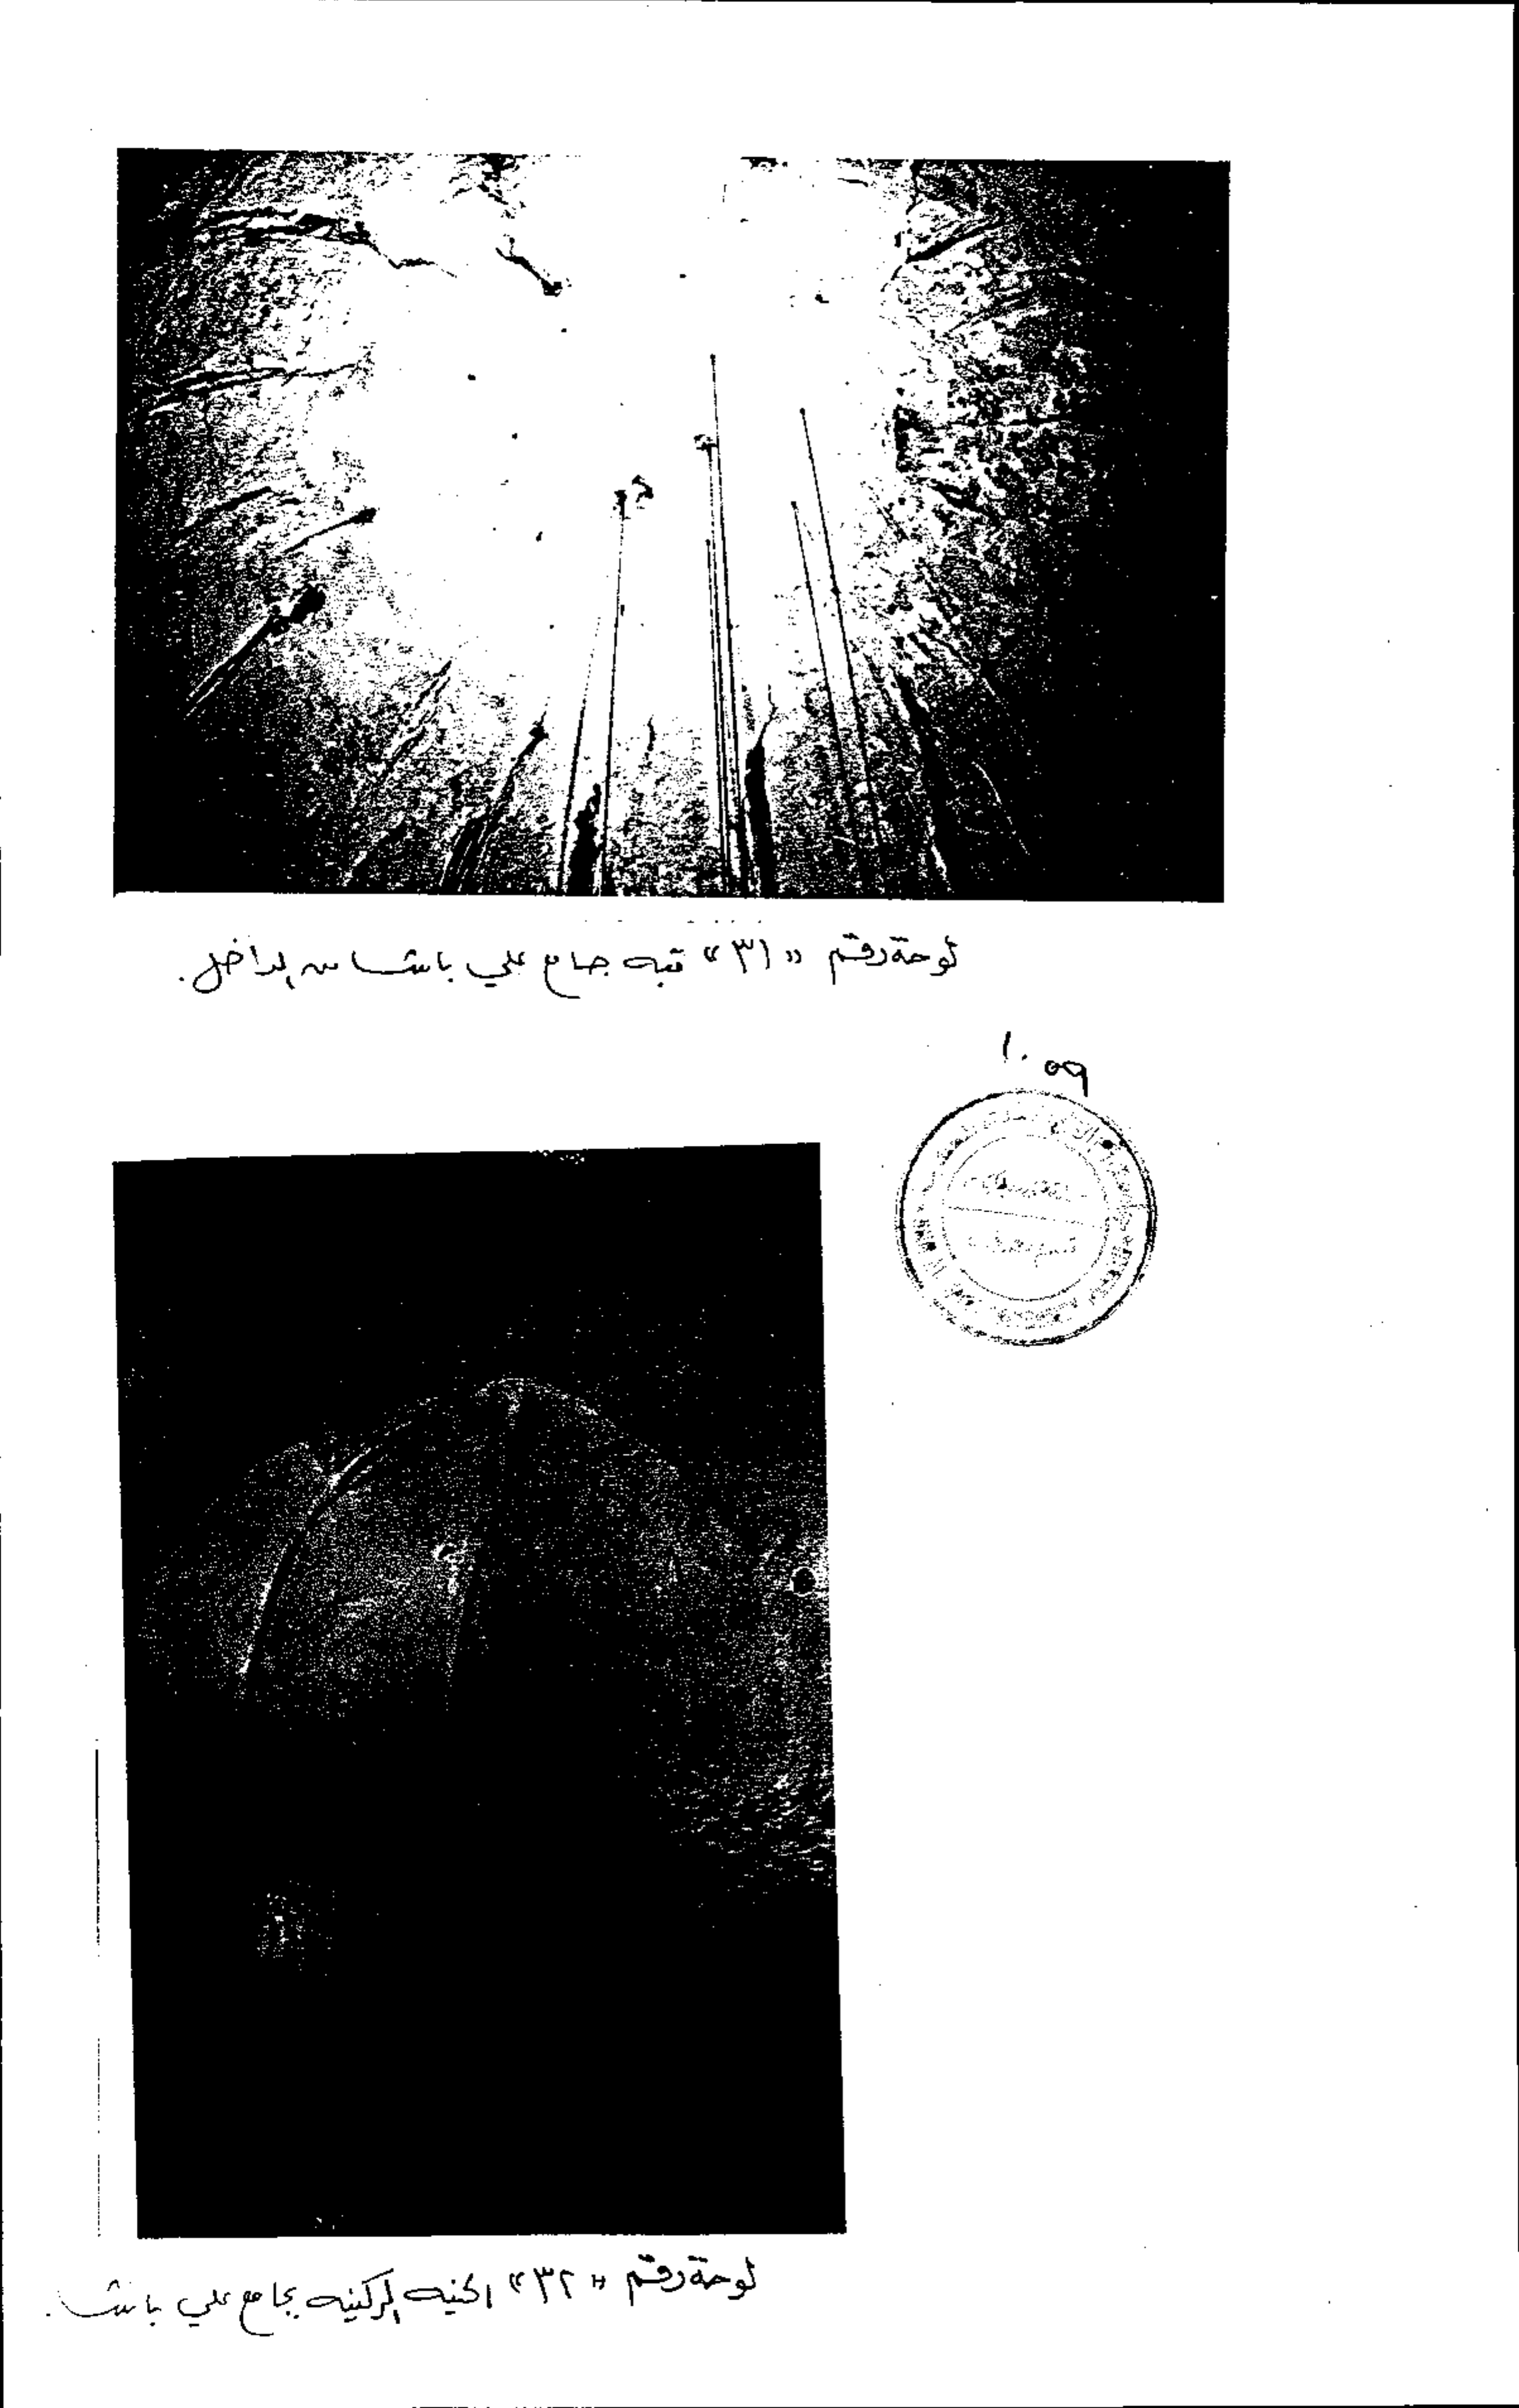 لوحة رقم «٣١» قبه جامع علي باشا من الداخل.
١٠٥٩
لوحة رقم «٣٢» الحنيه الركنيه بجامع علي باشا.